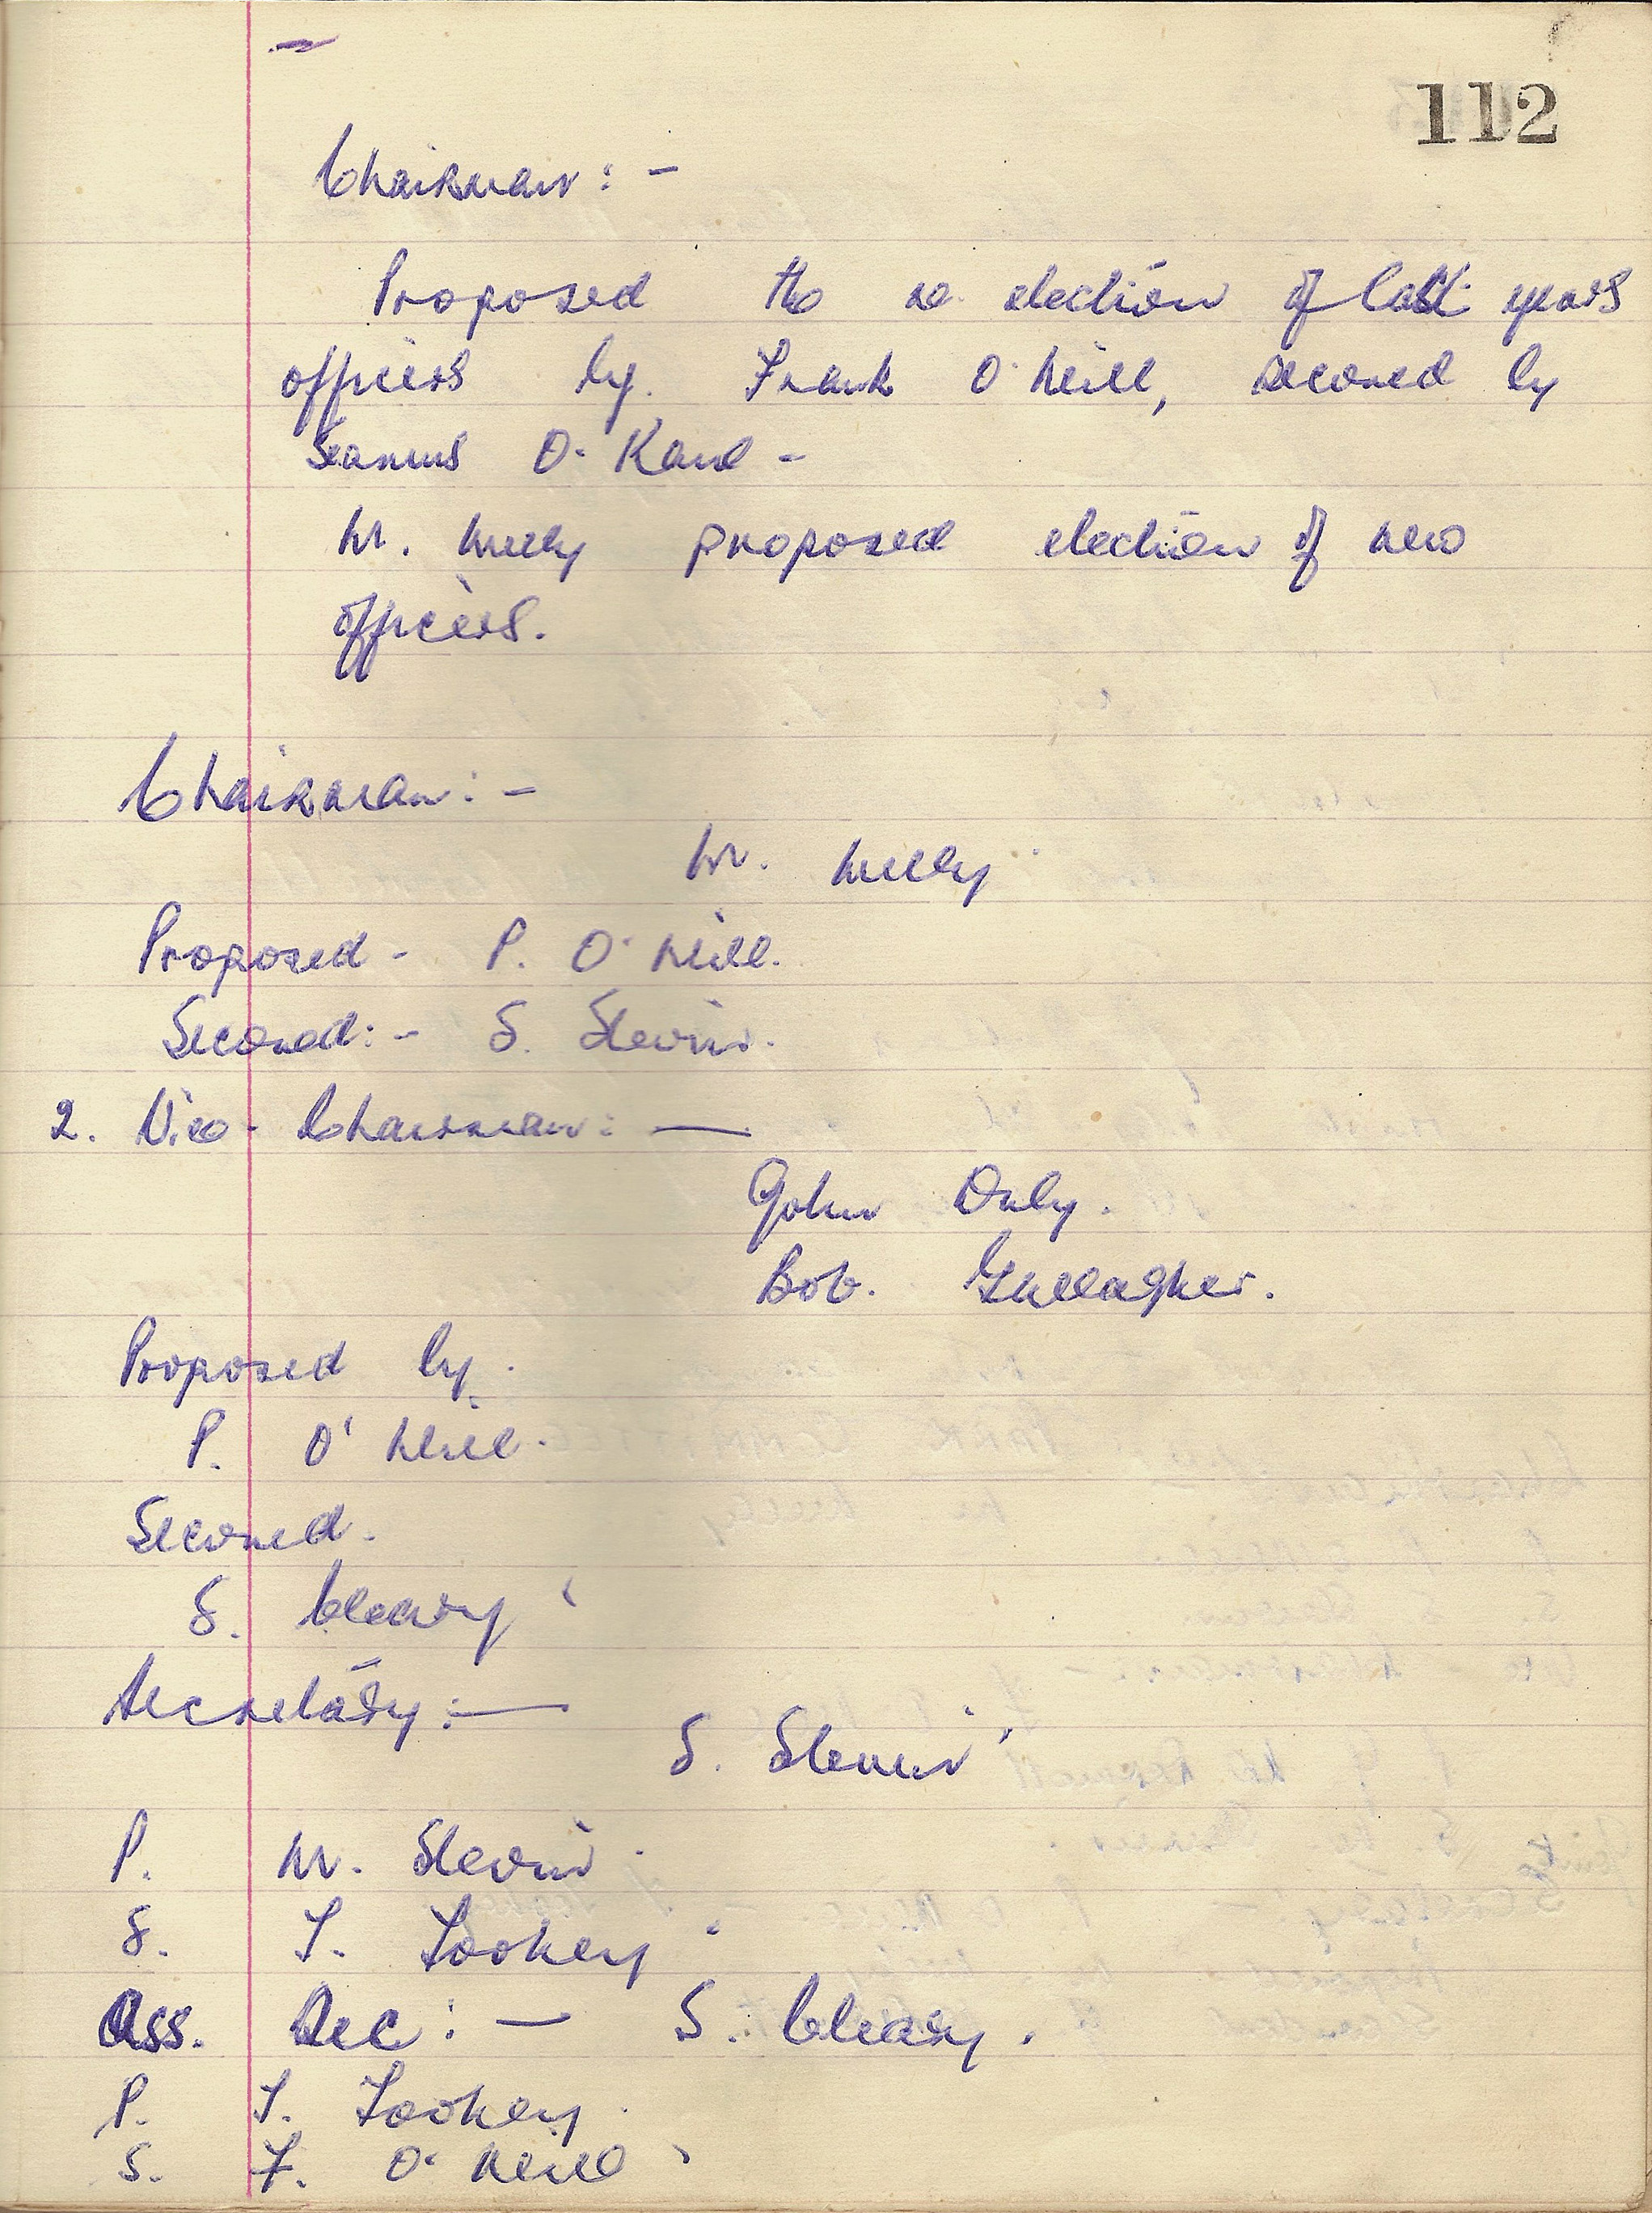 112
Chairman: -
Proposed the re. election of last years
officers by. Frank O'Neill, seconed by
Seamus O. Kane -
M. proposed election of new
officers.
Chairman: -
M.
Proposed - P. O'Neill.
Seconed: - S. Slevin.
2. Vice - Chairman: —
John Daly.
Bob. Gallagher.
Proposed by.
P. O'Neill.
Seconed.
S. Cleary
Secretary: —
S. Slevin
P. M. Slevin.
S. T. Toohey
Ass. Sec: — S. Cleary.
P. T. Toohey.
S. F. O'Neill